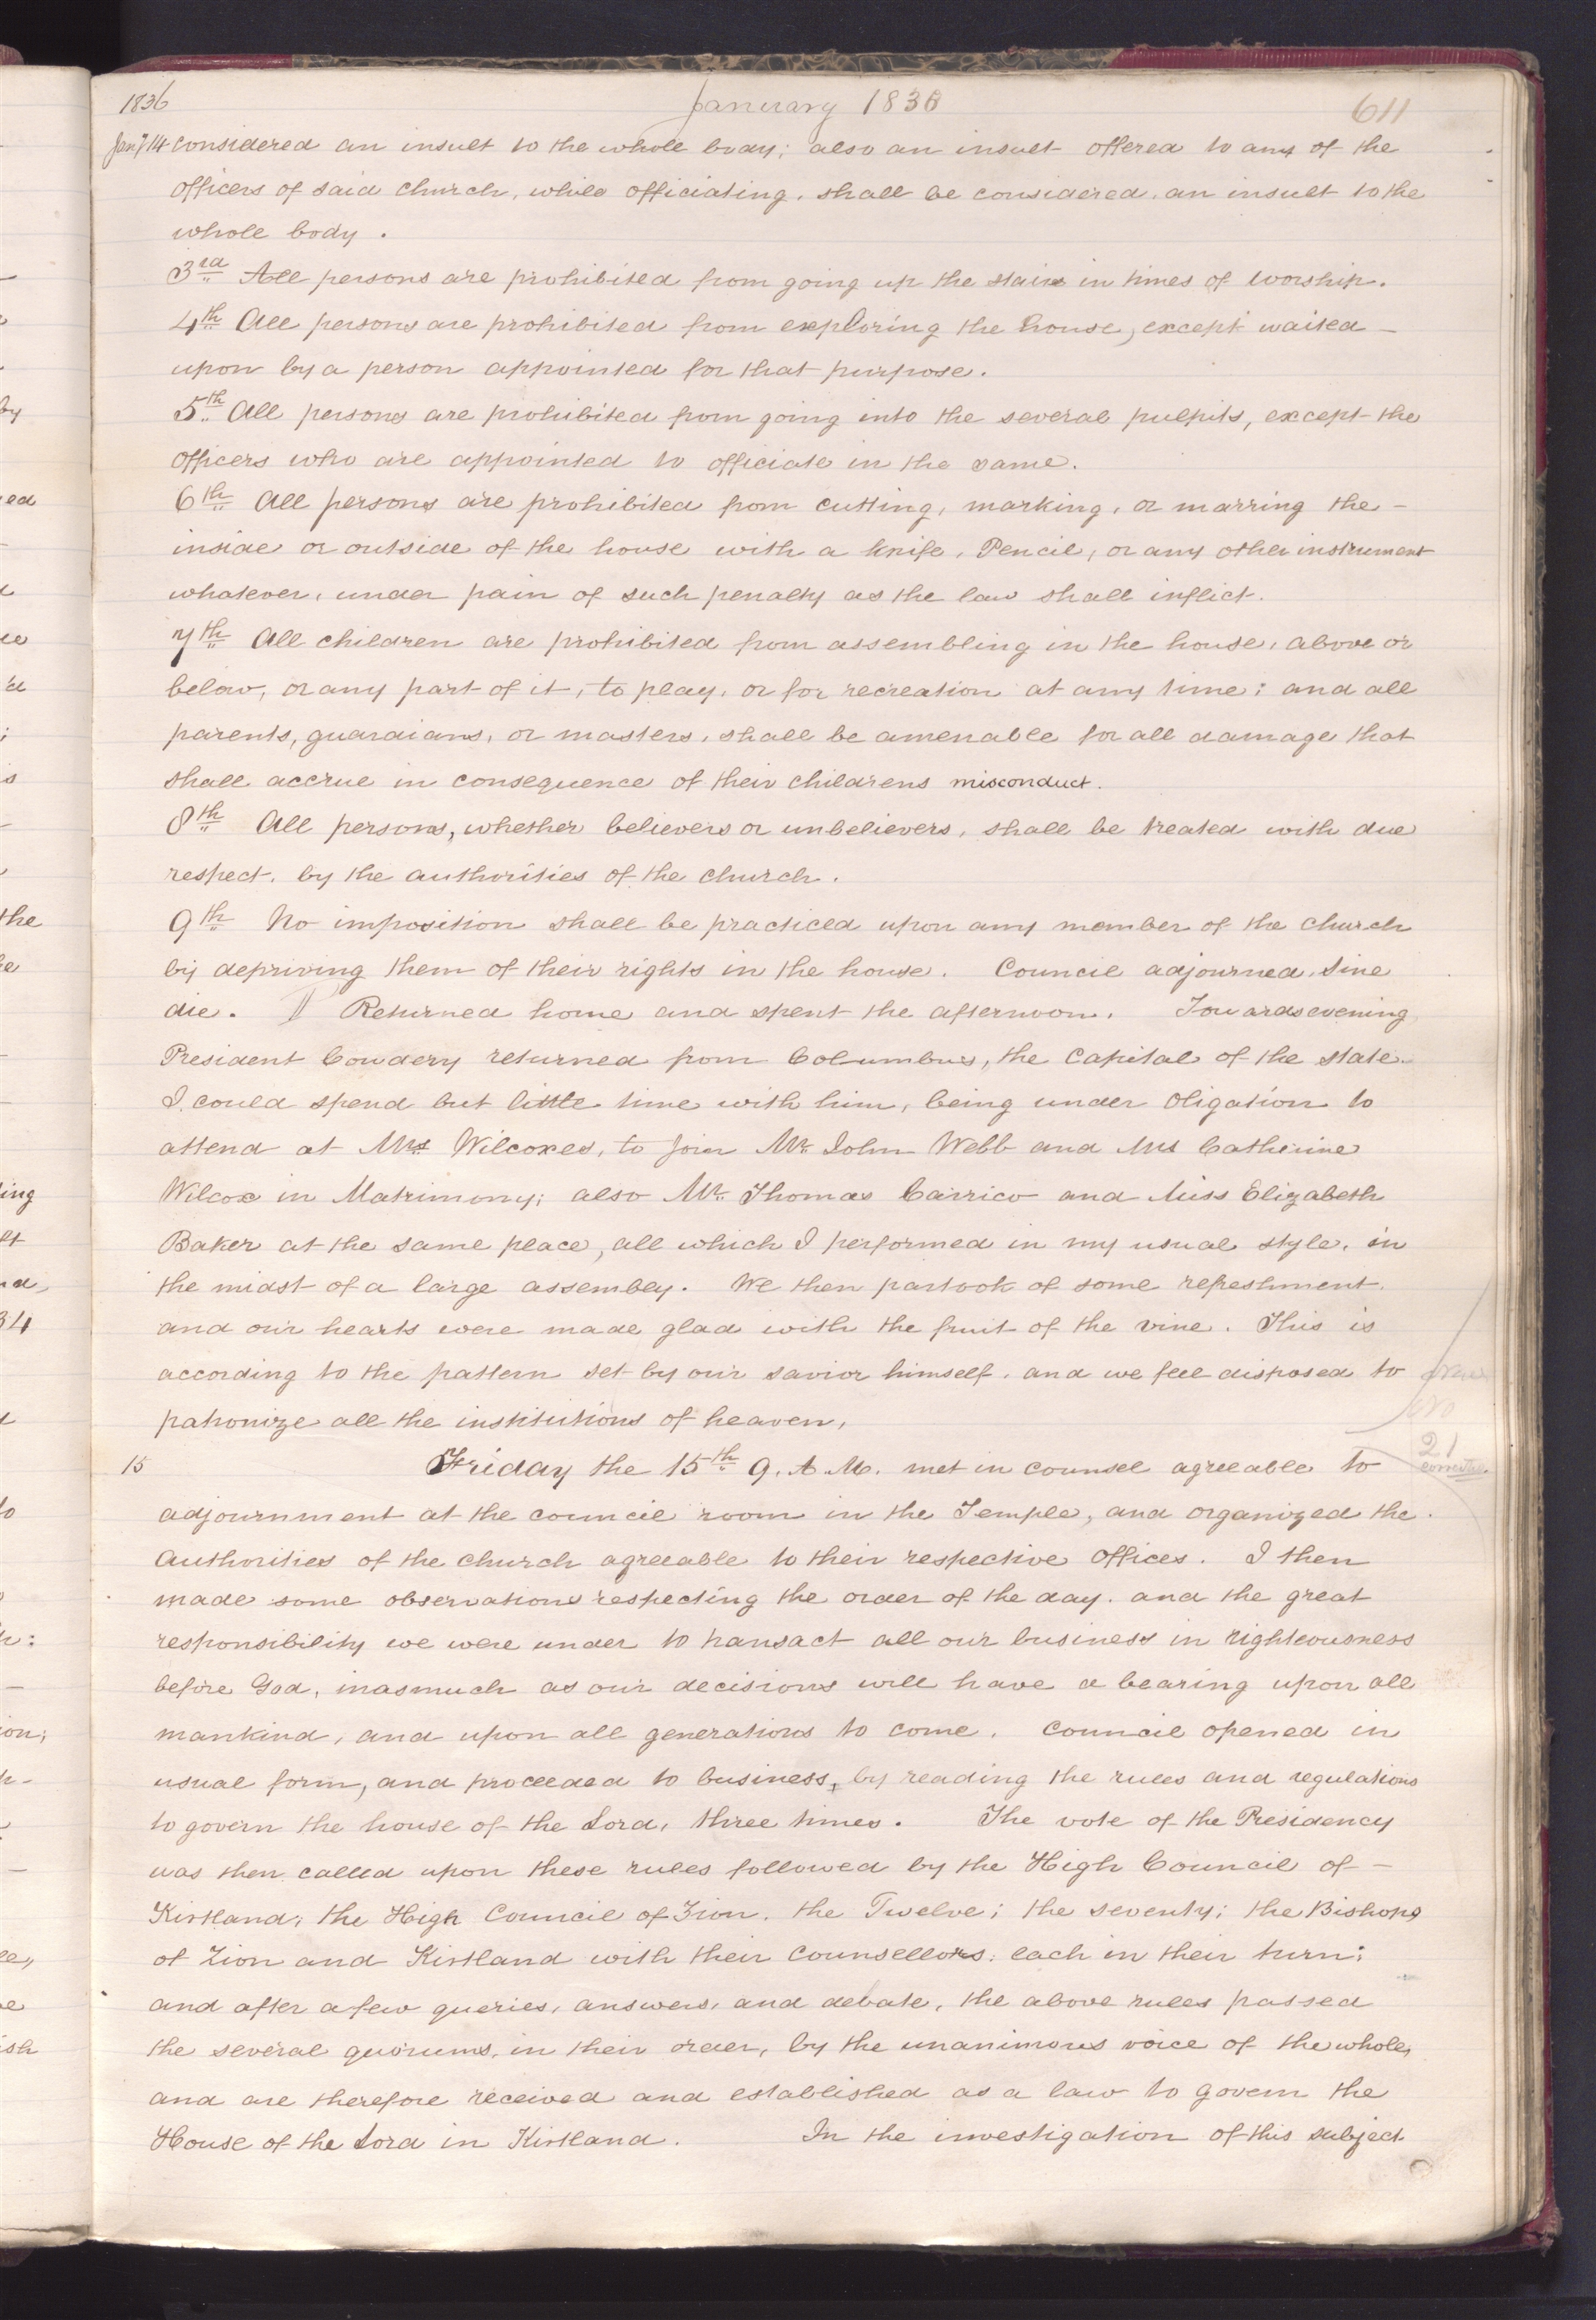 1836 January 1836 611
Jany 14 considered an insult to the whole body; also an insult offered to any of the
officers of said church, while officiating, shall be considered, an insult to the
whole body.
3rd All persons are prohibited from going up the stairs in times of worship.
4th All persons are prohibited from exploring the house, except waited
upon by a person appointed for that purpose.
5th All persons are prohibited from going into the several pulpits, except the
officers who are appointed to officiate in the same.
6th All persons are prohibited from cutting, marking, or marring the
inside or outside of the house with a knife, Pencil, or any other instrument
whatever, under pain of such penalty as the law shall inflict.
7th All children are prohibited from assembling in the house, above or
below, or any part of it, to play, or for recreation at any time; and all
parents, guardians, or masters, shall be amenable for all damage that
shall accrue in consequence of their childrens misconduct.
8th All persons, whether believers or unbelievers, shall be treated with due
respect, by the authorities of the church.
9th No imposition shall be practiced upon any member of the church
by depriving them of their rights in the house. Council adjourned, sine
die. ¶ Returned home and spent the afternoon. Towards evening
President Cowdery returned from Columbus, the Capital of the state.
I could spend but little time with him, being under oligation to
attend at Mrs Wilcoxes, to join Mr. John Webb and Mrs Catherine
Wilcox in Matrimony; also Mr. Thomas Carrico and Miss Elizabeth
Baker at the same place, all which I performed in my usual style, in
the midst of a large assembly. We then partook of some refreshment,
and our hearts were made glad with the fruit of the vine. This is
according to the pattern set by our savior himself, and we feel disposed to
patronize all the institutions of heaven,
15 Friday the 15th 9. A. M. met in counsel agreeable to
21
adjournment at the council room in the Temple, and organized the
Authorities of the church agreeable to their respective offices. I then
made some observations respecting the order of the day, and the great
responsibility we were under to transact all our business in righteousness
before God, inasmuch as our decisions will have a bearing upon all
mankind, and upon all generations to come. Council opened in
usual form, and proceeded to business, by reading the rules and regulations
to govern the house of the Lord, three times. The vote of the Presidency
was then called upon these rules followed by the High Council of
Kirtland; the High Council of Zion, the Twelve; the seventy; the Bishops
of Zion and Kirtland with their counsellors, each in their turn;
and after a few queries, answers, and debate, the above rules passed
the several quorums, in their order, by the unanimous voice of the whole,
and are therefore received and established as a law to govern the
House of the Lord in Kirtland. In the investigation of this subject